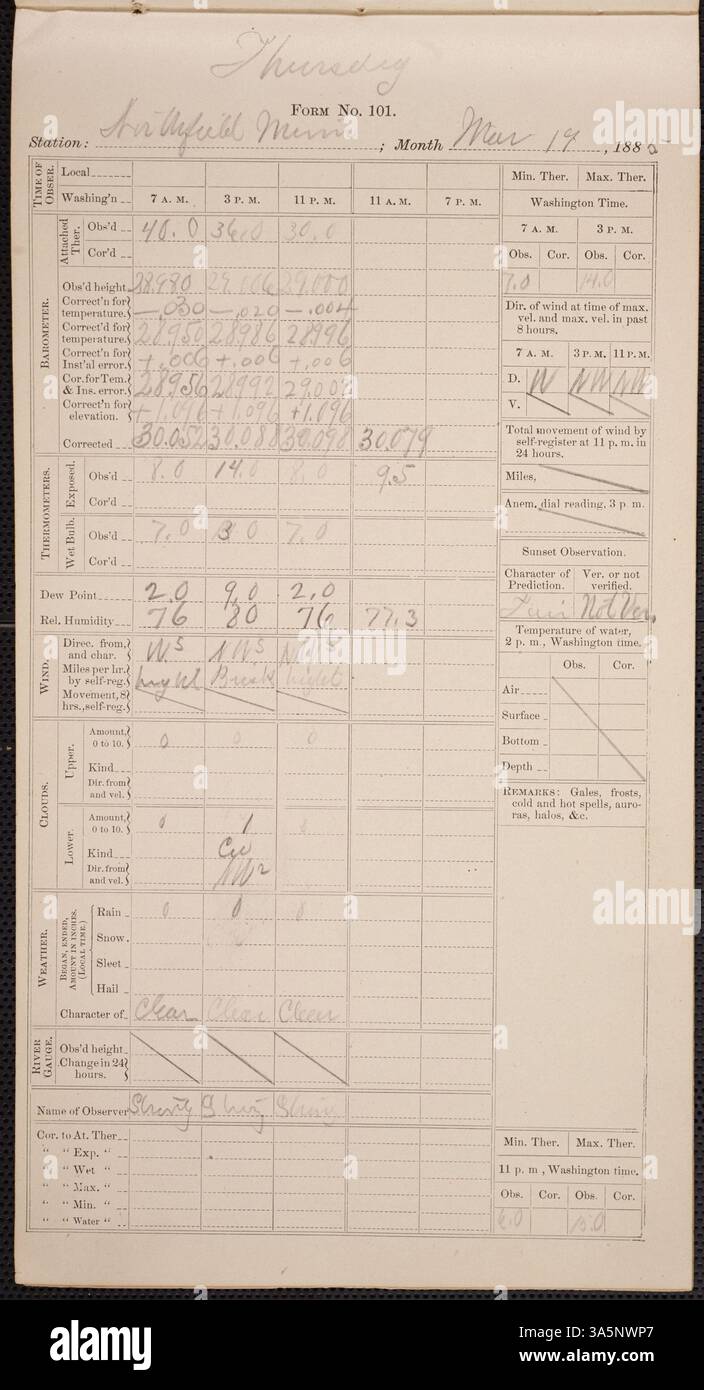 Thursday
FORM NO. 101.
Station: Northfield Minn ; Month Mar 19, 1885
TIME OF OBSER.
Local
Washing'n 7 A. M. 3 P. M. 11 P. M. 11 A. M. 7 P. M.
BAROMETER.
Attached Ther.
Obs'd 40.0 36.0 30.0
Cor'd
Obs'd height 28.980 29.006 29.000
Correct'n for temperature. -.030 -.020 -.004
Correct'd for temperature. 28950 28986 28996
Correct'n for Inst'al error. +.006 +.006 +.006
Cor. for Tem. & Ins. error. 28956 28992 29.002
Correct'n for elevation. +1.096 +1.096 +1.096
Corrected 30.052 30.088 30.098 30.079
THERMOMETERS.
Exposed.
Obs'd 8.0 14.0 8.0 9.5
Cor'd
Wet Bulb.
Obs'd 7.0 13 0 7.0
Cor'd
Dew Point 2.0 9.0 2.0
Rel. Humidity 76 80 76 77.3
WIND.
Direc. from, and char. W.S NWS
Miles per hr. by self-reg. Light Brisk Light
Movement, 8 hrs., self-reg.
CLOUDS.
Upper.
Amount, 0 to 10. 0 0 0
Kind
Dir. from and vel.
Lower.
Amount, 0 to 10. 0 1 0
Kind Cu
Dir. from and vel. NW2
WEATHER.
BEGAN, ENDED, AMOUNT IN INCHES. (LOCAL TIME.)
Rain 0 0 0
Snow.
Sleet
Hail
Character of Clear Clear Clear
RIVER GAUGE.
Obs'd height
Change in 24 hours.
Name of Observer
Cor. to At. Ther
" " Exp. "
" " Wet "
" " Max. "
" " Min. "
" " Water "
Min. Ther. Max. Ther.
Washington Time.
7 A. M. 3 P. M.
Obs. Cor. Obs. Cor.
7.0 14.0
Dir. of wind at time of max. vel. and max. vel. in past 8 hours.
7 A. M. 3 P. M. 11 P. M.
D. W NW NW
V.
Total movement of wind by self-register at 11 p. m. in 24 hours.
Miles,
Anem. dial reading, 3 p m.
Sunset Observation.
Character of Prediction. Ver. or not verified.
Fair Not Ver.
Temperature of water, 2 p. m., Washington time.
Obs. Cor.
Air
Surface
Bottom
Depth
REMARKS: Gales, frosts, cold and hot spells, auroras, halos, &c.
Min. Ther. Max. Ther.
11 p. m , Washington time.
Obs. Cor. Obs. Cor.
6.0 15.0
alamy
alamy
Image ID: 3A5NWP7
www.alamy.com